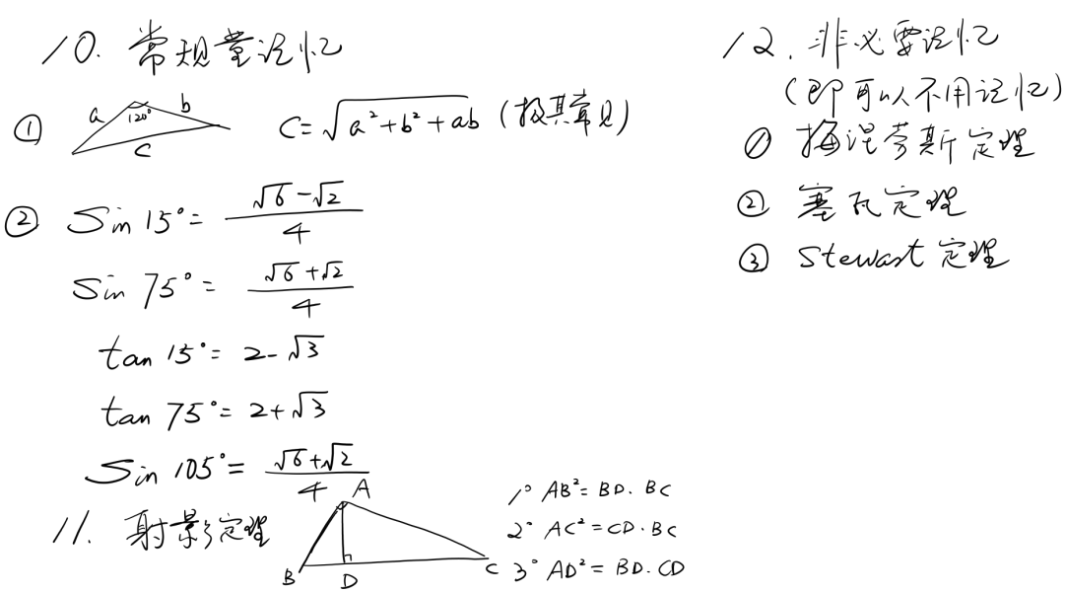 10. 常规量记忆
① a b 120° c C=√(a²+b²+ab) (极其常见)
② Sin 15°= (√6-√2)/4
Sin 75°= (√6+√2)/4
tan 15°= 2-√3
tan 75°= 2+√3
Sin 105°= (√6+√2)/4
11. 射影定理
A B D C
1° AB²=BD·BC
2° AC²=CD·BC
3° AD²=BD·CD
12. 非必要记忆
(即可以不用记忆)
① 梅涅劳斯定理
② 塞瓦定理
③ Stewart 定理